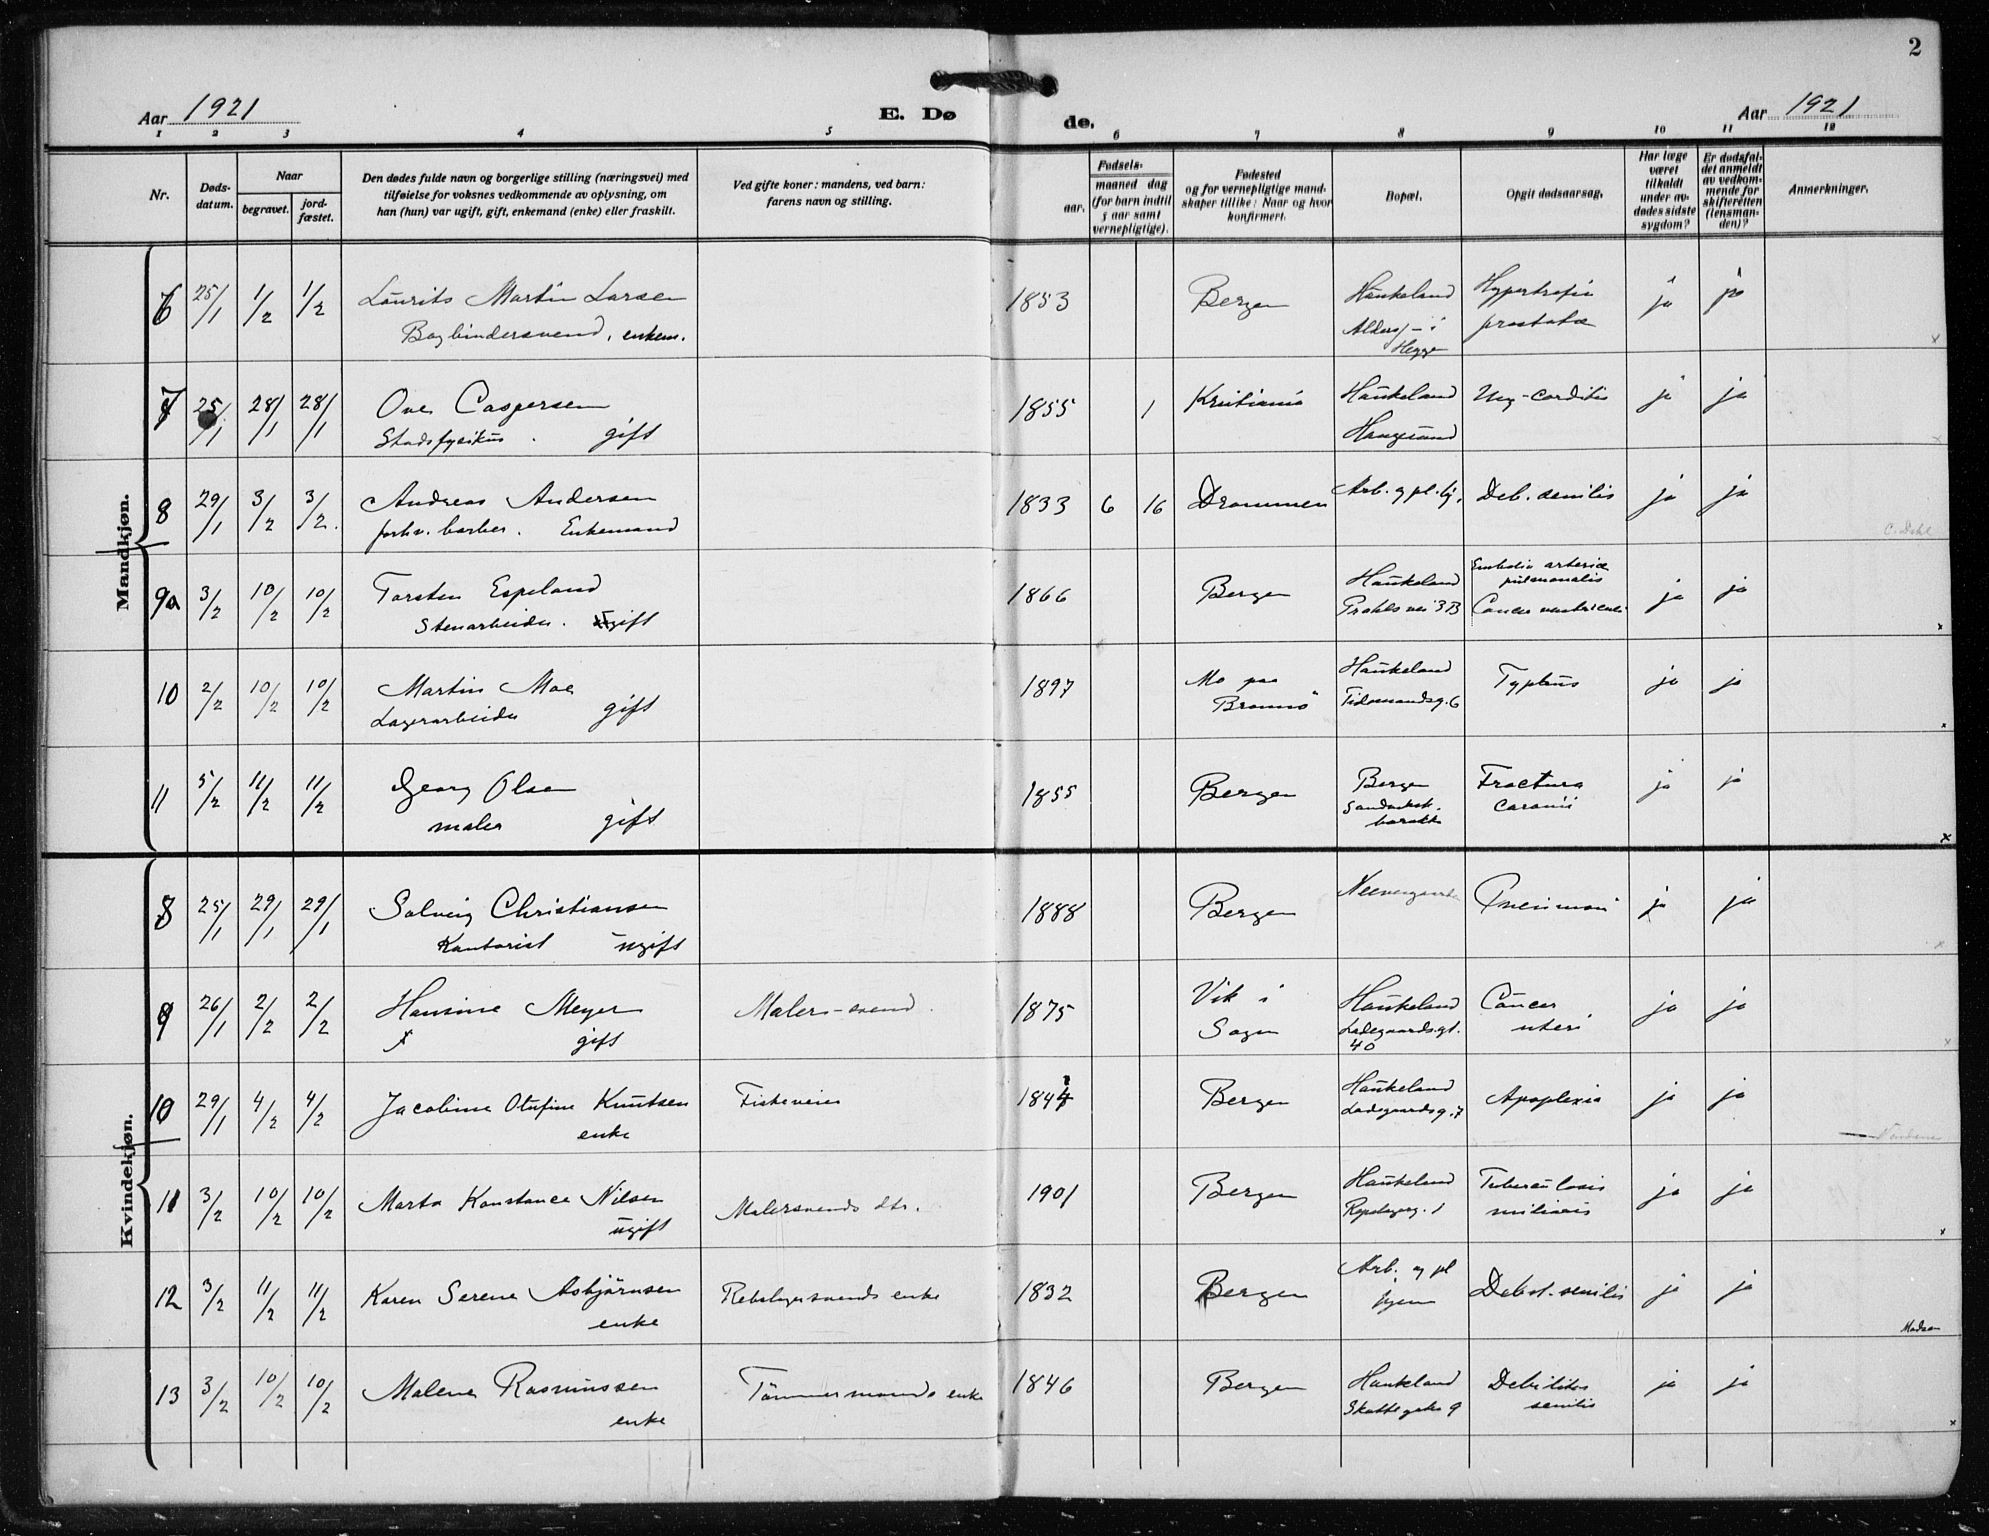 2
Aar 1921
E. Dø
de.
Aar 1921
1 2 3 4 5 6 7 8 9 10 11 12
Nr.
Døds-
datum.
Naar
begravet.
jord-
fæstet.
Den dødes fulde navn og borgerlige stilling (næringsvei) med
tilføielse for voksnes vedkommende av oplysning, om
han (hun) var ugift, gift, enkemand (enke) eller fraskilt.
Ved gifte koner: mandens, ved barn:
farens navn og stilling.
Fødsels-
aar.
maaned dag
(for barn indtil
5 aar samt
vernepligtige).
Fødested
og for vernepligtige mand-
skaper tillike: Naar og hvor
konfirmert.
Bopæl.
Opgit dødsaarsag.
Har læge
været
tilkaldt
under av-
dødes sidste
sygdom?
Er dødsfal-
det anmeldt
av vedkom-
mende for
skifteretten
(lensman-
den)?
Anmerkninger.
Mandkjøn.
6 25/1 1/2 1/2 Laurits Martin Larsen 1853 Bergen Haukeland Hypertrofia ja ja
Bogbindersvend, enkem. prostatae
x
7 25/1 28/1 28/1 Ove Caspersen 1855 1 Kristiania Haukeland ja ja
Stadsfysikus. gift Haugesund
x
8 29/1 3/2 3/2. Andreas Andersen 1833 6 16 Drammen Arb. og pl. hj. Deb. senilis ja ja
forhv. barber. Enkemand
C. Dahl
9a 3/2 10/2 10/2 Torsten Espeland 1866 Bergen Haukeland Embolia arteriae
pulmonalis ja ja
Stenarbeider. gift Prahls vei 3B Cancer ventriculi
x
10 2/2 10/2 10/2 Martin Moe 1897 Mo paa Haukeland Typhus ja ja
Lagerarbeider gift Brønnø Tidemandsg. 6
x
11 5/2 11/2 11/2 Georg Olsen 1855 Bergen Bergen Fractura ja ja
maler gift Sandvikst. cranii
barakke
x
Kvindekjøn.
8 25/1 29/1 29/1 Solveig Christiansen 1888 Bergen Neevengaarden Pneumoni ja ja
Kontorist ugift
x
9 26/1 2/2 2/2 Hansine Meyer Maler-svend. 1875 Vik i Haukeland Cancer ja ja
x gift Sogn Ladegaardsgt. uteri
40
x
10 29/1 4/2 4/2 Jacobine Olufine Knutsen Fiskeveier 1844 Bergen Haukeland Apoplexia ja ja
enke Ladegaardsg. 7
11 3/2 10/2 10/2 Marta Konstance Nilsen Malersvends dtr. 1901 Bergen Haukeland Tuberculosis ja ja
ugift Repslagerg. 1 miliaris
x
12 3/2 11/2 11/2 Karen Serene Asbjörnsen Rebslagersvends enke 1832 Bergen Arb. og pl Debil. senilis ja ja
enke hjem
Madsen
13 3/2 10/2 10/2 Malene Rasmussen Tømmermands enke 1846 Bergen Haukeland Debilitas ja ja
enke Skottegaten 9 senilis
x